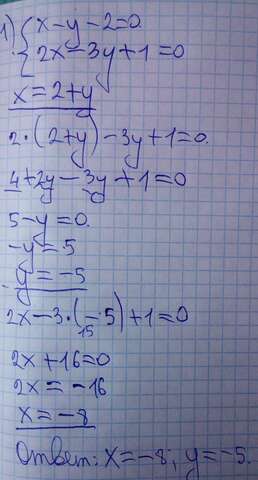 1) { x-y-2=0
2x-3y+1=0
x=2+y
2·(2+y)-3y+1=0
4+2y-3y+1=0
5-y=0
-y=5
y=-5
2x-3·(-5)+1=0
15
2x+16=0
2x=-16
x=-8
Ответ: x=-8; y=-5.